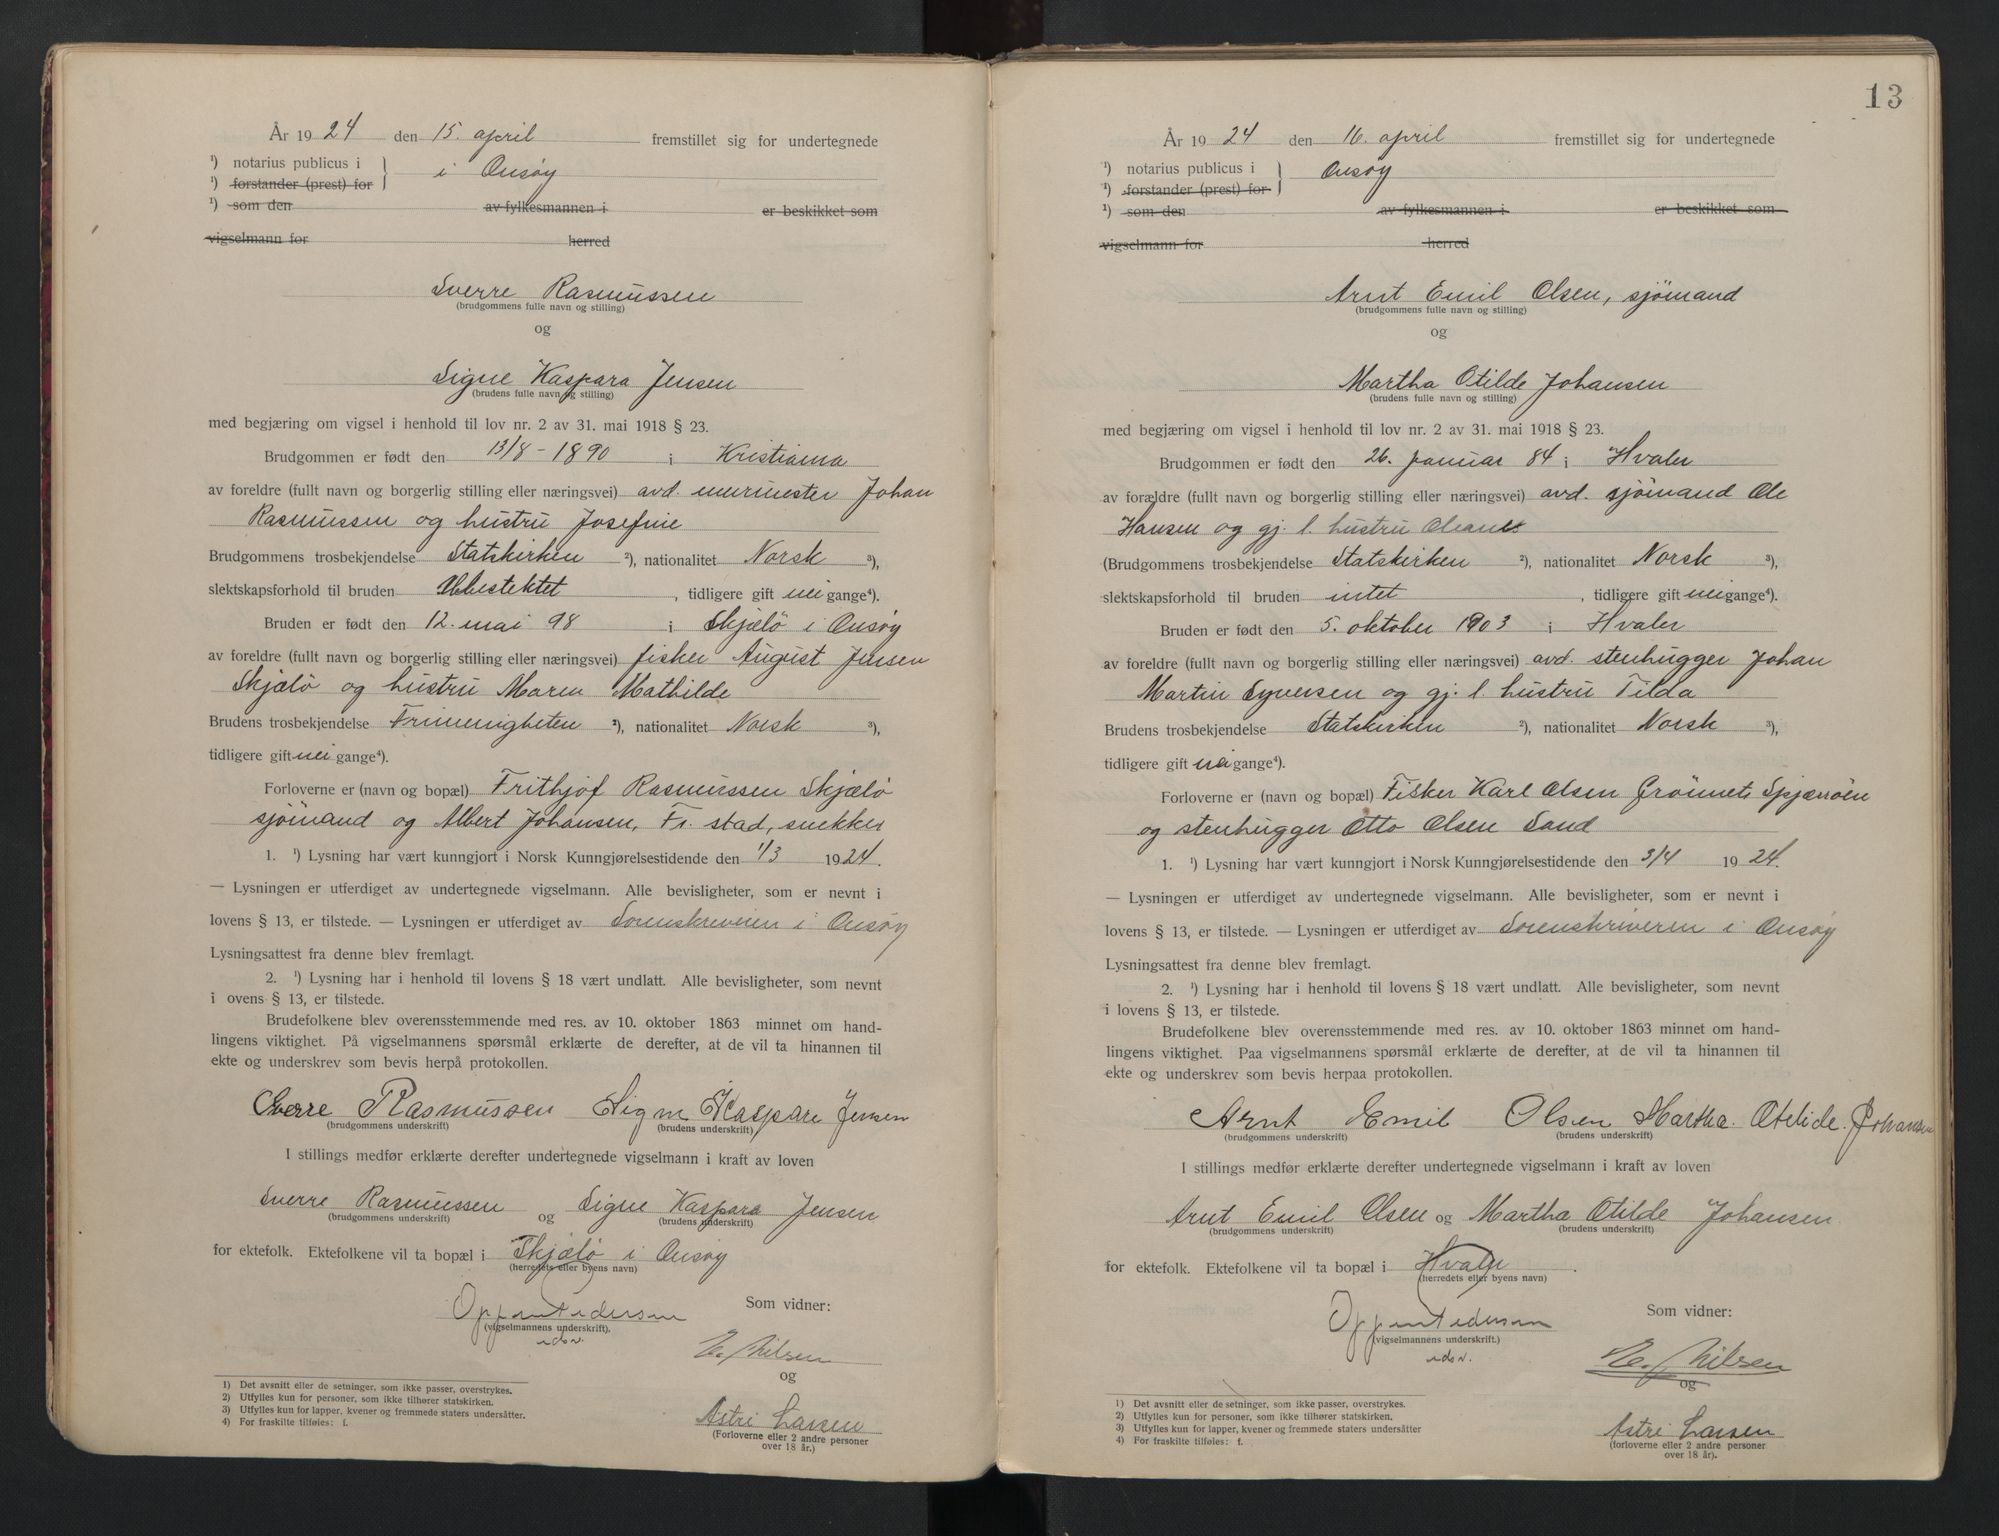 År 1924 den 15. april fremstillet sig for undertegnede
¹) notarius publicus i } i Onsøy
¹) forstander (prest) for
¹) som den av fylkesmannen i er beskikket som
vigselmann for herred
Sverre Rasmussen
(brudgommens fulle navn og stilling)
og
Signe Kaspara Jensen
(brudens fulle navn og stilling)
med begjæring om vigsel i henhold til lov nr. 2 av 31. mai 1918 § 23.
Brudgommen er født den 13/8 - 1890 i Kristiania
av foreldre (fullt navn og borgerlig stilling eller næringsvei) avd. murmester Johan
Rasmussen og hustru Josefine
Brudgommens trosbekjendelse Statskirken ²), nationalitet Norsk ³),
slektskapsforhold til bruden Ubeslektet, tidligere gift nei gange⁴).
Bruden er født den 12. mai 98 i Skjælö i Onsøy
av foreldre (fullt navn og borgerlig stilling eller næringsvei) fisker August Jensen
Skjælö og hustru Maren Mathilde
Brudens trosbekjendelse Frimenigheten ²), nationalitet Norsk ³),
tidligere gift nei gange⁴).
Forloverne er (navn og bopæl) Frithjof Rasmussen Skjælö
sjömand og Albert Johansen, Fr. stad, snekker
1. ¹) Lysning har vært kunngjort i Norsk Kunngjørelsestidende den 1/3 1924.
— Lysningen er utferdiget av undertegnede vigselmann. Alle bevisligheter, som er nevnt i
lovens § 13, er tilstede. — Lysningen er utferdiget av Sorenskriveren i Onsøy
Lysningsattest fra denne blev fremlagt.
2. ¹) Lysning har i henhold til lovens § 18 vært undlatt. Alle bevisligheter, som nevnt
i ovens § 13, er tilstede.
Brudefolkene blev overensstemmende med res. av 10. oktober 1863 minnet om hand-
lingens viktighet. På vigselmannens spørsmål erklærte de derefter, at de vil ta hinannen til
ekte og underskrev som bevis herpå protokollen.
Sverre Rasmussen Signe Kaspare Jensen
(brudgommens underskrift) (brudens underskrift)
I stillings medfør erklærte derefter undertegnede vigselmann i kraft av loven
Sverre Rasmussen og Signe Kaspara Jensen
(brudgommens underskrift) (brudens underskrift)
for ektefolk. Ektefolkene vil ta bopæl i Skjælö i Onsøy
(herredets eller byens navn)
Som vidner:
(vigselmannens underskrift).
E. Nilsen
og
Astri Larsen
(Forloverne eller 2 andre personer
over 18 år.)
1) Det avsnitt eller de setninger, som ikke passer, overstrykes.
2) Utfylles kun for personer, som ikke tilhører statskirken.
3) Utfylles kun for lapper, kvener og fremmede staters undersåtter.
4) For fraskilte tilføies: f.
13
År 1924 den 16. april fremstillet sig for undertegnede
¹) notarius publicus i } Onsøy
¹) forstander (prest) for
¹) som den av fylkesmannen i er beskikket som
vigselmann for herred
Arnt Emil Olsen, sjömand
(brudgommens fulle navn og stilling)
og
Martha Otilde Johansen
(brudens fulle navn og stilling)
med begjæring om vigsel i henhold til lov nr. 2 av 31. mai 1918 § 23.
Brudgommen er født den 26. januar 84 i Hvaler
av forældre (fullt navn og borgerlig stilling eller næringsvei) avd. sjömand Ole
Hansen og gj. l. hustru Oleane
(Brudgommens trosbekjendelse Statskirken ²), nationalitet Norsk ³),
slektskapsforhold til bruden intet, tidligere gift nei gange⁴).
Bruden er født den 5. oktober 1903 i Hvaler
av foreldre (fullt navn og borgerlig stilling eller næringsvei) avd. stenhugger Johan
Martin Syversen og gj. l. hustru Tilda
Brudens trosbekjendelse Statskirken ²), nationalitet Norsk ³),
tidligere gift nei gange⁴).
Forloverne er (navn og bopæl) Fisker Karl Olsen Grönnet, Spjæröen
og stenhugger Otto Olsen Sand
1. ¹) Lysning har vært kunngjort i Norsk Kunngjørelsestidende den 3/4 1924.
— Lysningen er utferdiget av undertegnede vigselmann. Alle bevisligheter, som er nevnt i
lovens § 13, er tilstede. — Lysningen er utferdiget av Sorenskriveren i Onsøy
Lysningsattest fra denne blev fremlagt.
2. ¹) Lysning har i henhold til lovens § 18 vært undlatt. Alle bevisligheter, som nevnt
i lovens § 13, er tilstede.
Brudefolkene blev overensstemmende med res. av 10. oktober 1863 minnet om hand-
lingens viktighet. Paa vigselmannens spørsmål erklærte de derefter, at de vil ta hinannen til
ekte og underskrev som bevis herpaa protokollen.
Arnt Emil Olsen Martha Otelide Johansen
(brudgommens underskrift) (brudens underskrift)
I stillings medfør erklærte derefter undertegnede vigselmann i kraft av loven
Arnt Emil Olsen og Martha Otilde Johansen
(brudgommens underskrift) (brudens underskrift)
for ektefolk. Ektefolkene vil ta bopæl i Hvaler.
(herredets eller byens navn)
Som vidner:
(vigselmannens underskrift.)
E. Nilsen
og
Astri Larsen
(forloverne eller 2 andre personer
over 18 år).
1) Det avsnitt eller de setninger, som ikke passer, overstrykes.
2) Utfylles kun for personer, som ikke tilhører statskirken.
3) Utfylles kun for lapper, kvener og fremmede staters undersåtter
4) For fraskilte tilføies: f.